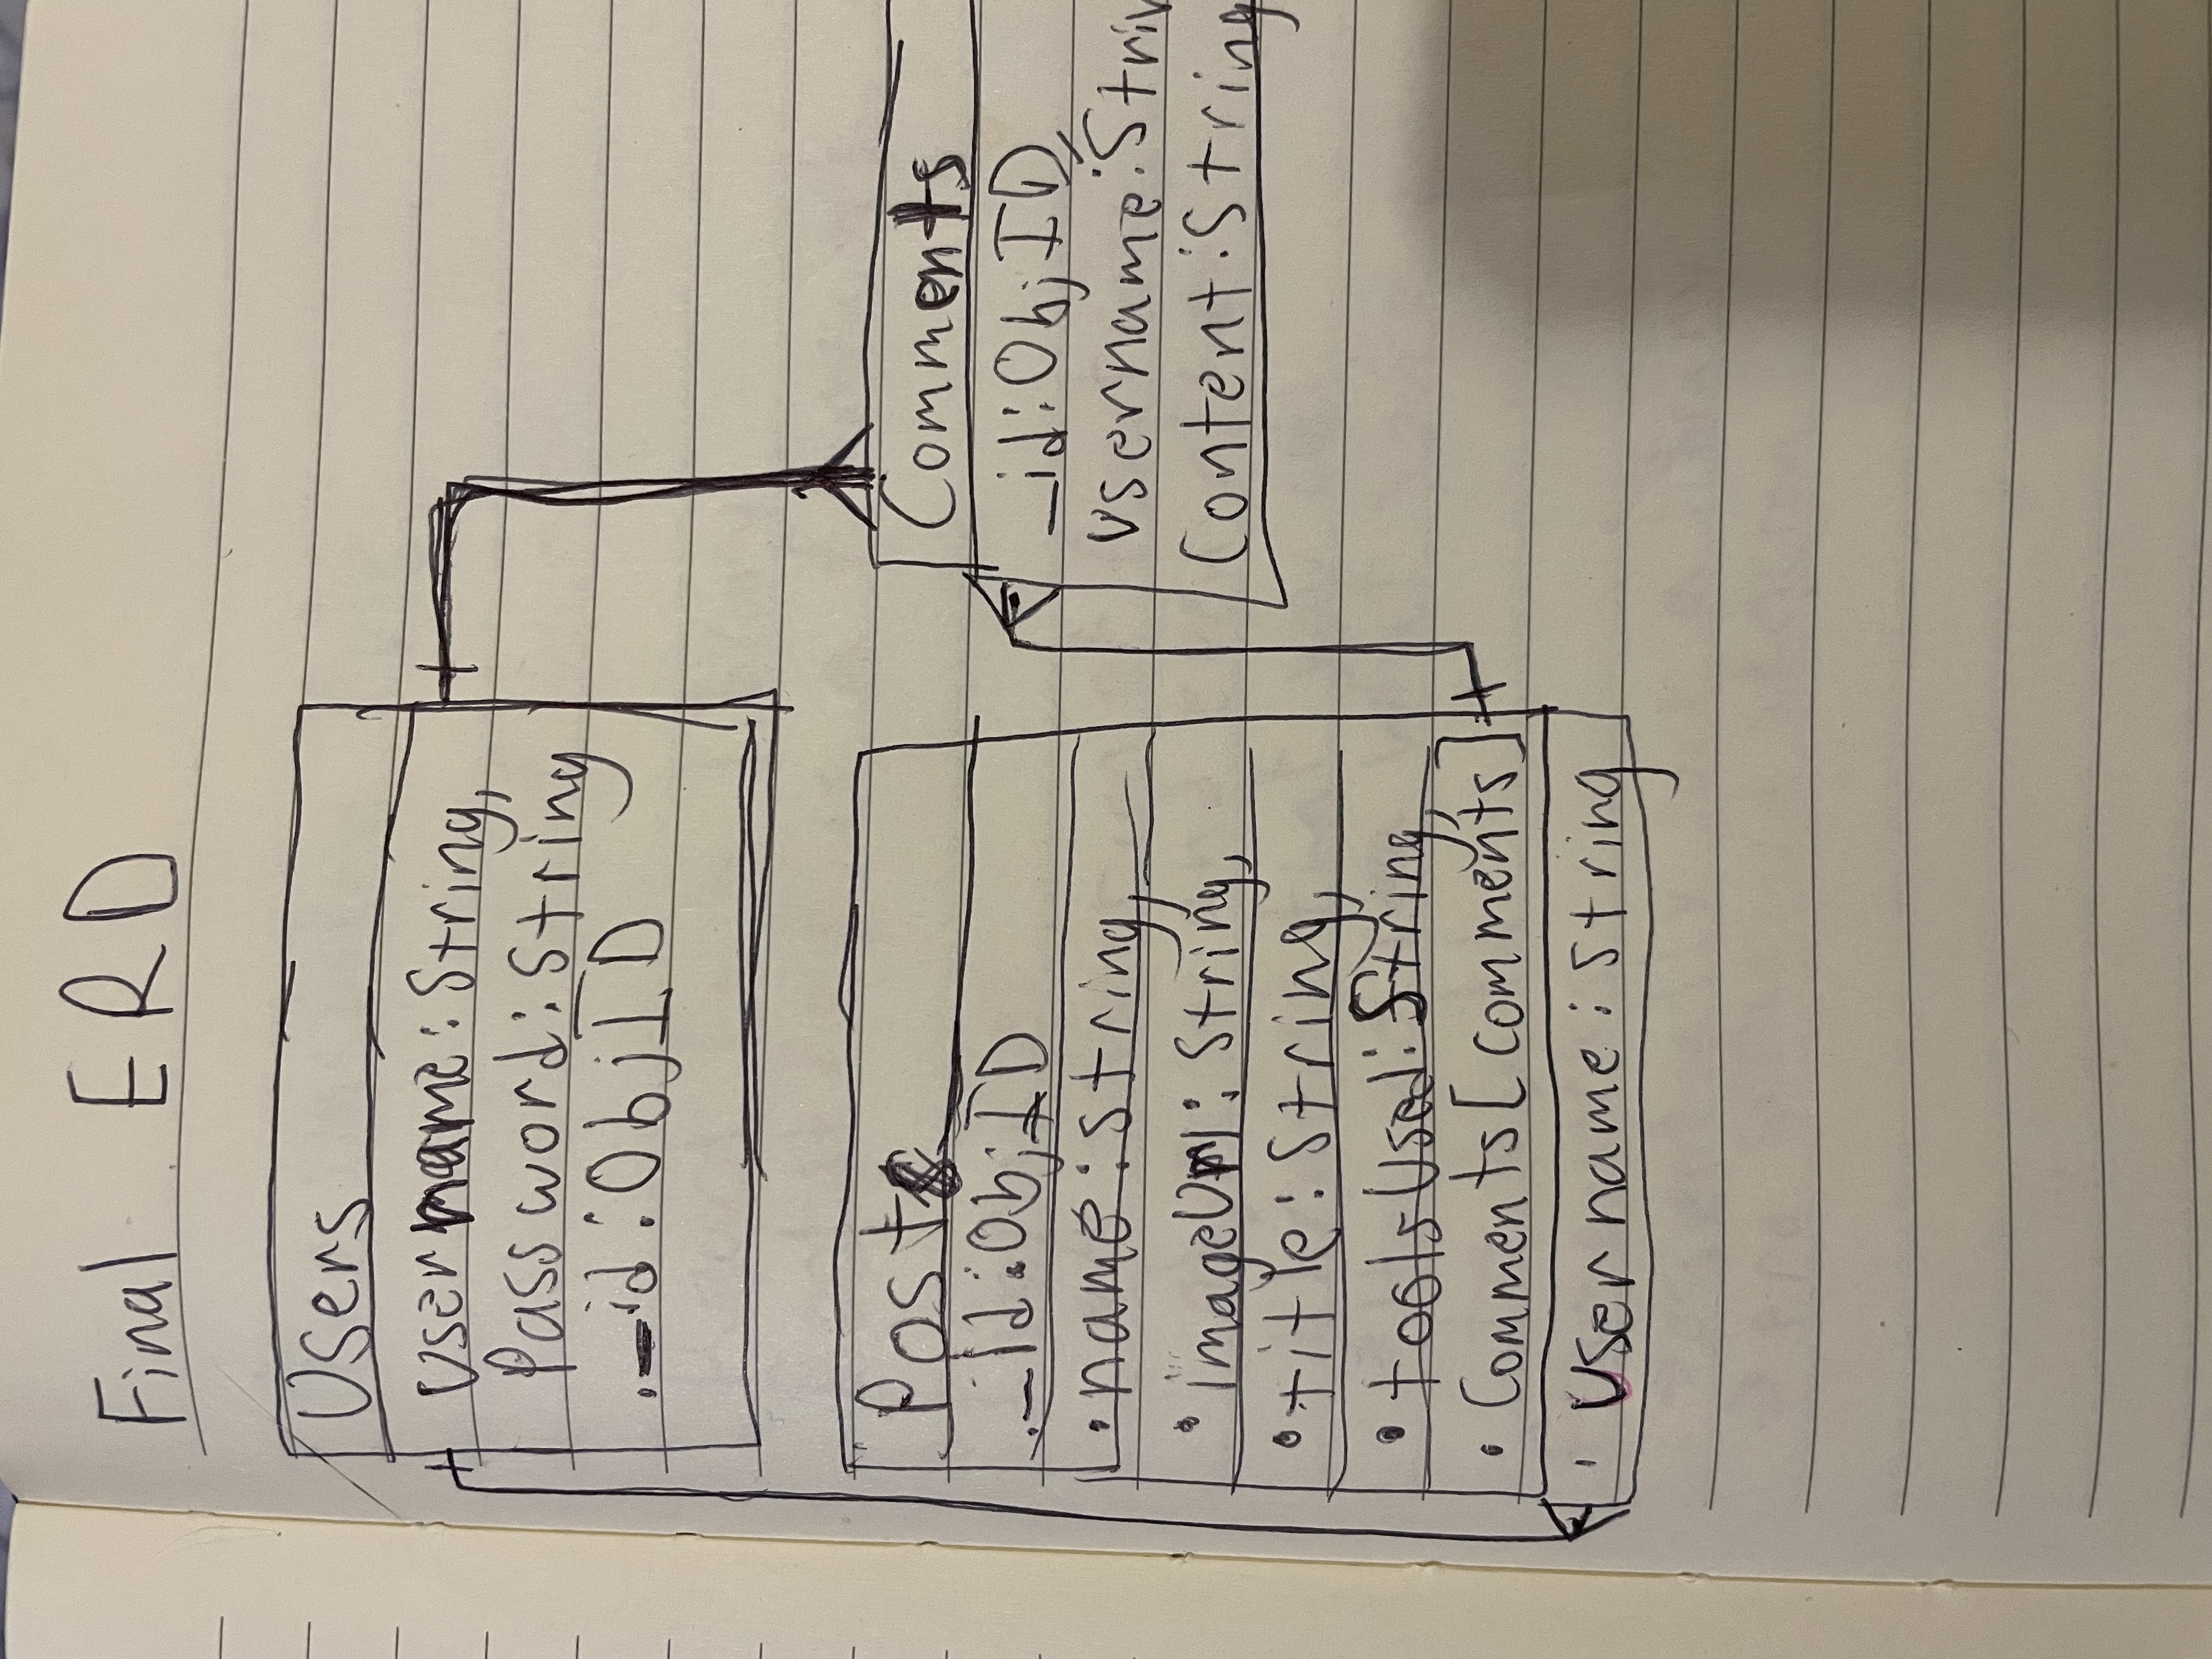 Final ERD
Users
username: String,
Password: String
._id: ObjID
Posts
._id: ObjID
• name: String,
• imageUrl: String,
• title: String,
• toolsUsed: String,
• Comments [comments]
• Username: String
Comments
_id: ObjID,
username: Strin
Content: String